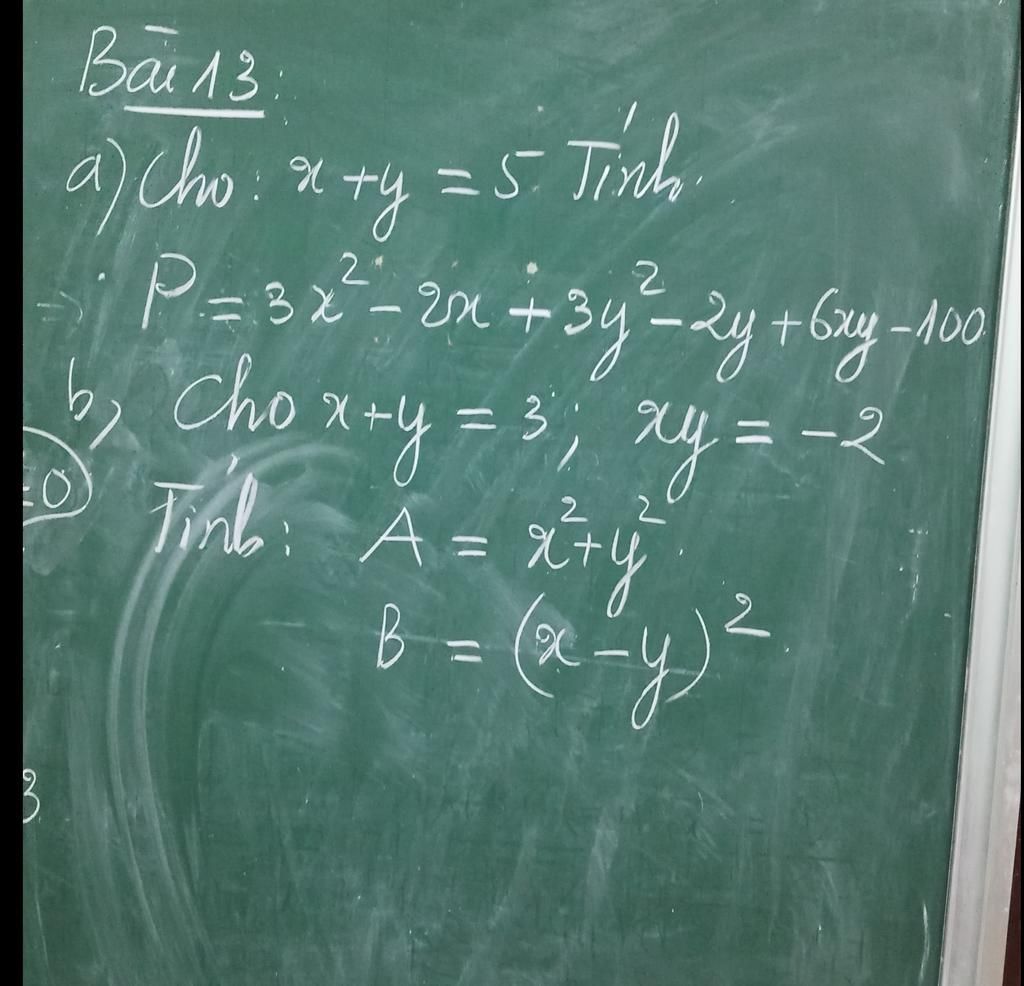 Bài 13:
a) Cho: x + y = 5 Tính
P = 3x² - 2x + 3y² - 2y + 6xy - 100
b, Cho x + y = 3; xy = -2
=0
Tính: A = x² + y².
B = (x - y)²
3